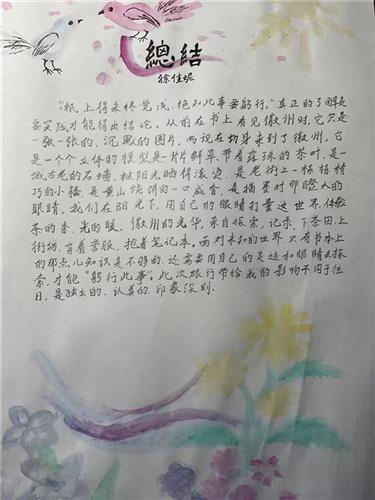 總结
徐佳妮
"纸上得来终觉浅,绝知此事要躬行。"真正的了解是
要实践才能得出结论。从前在书上看见徽州时,它只是
一张一张的、沉默的图片,而现在切身来到了徽州,它
是一个个立体的模型是一片片鲜翠、带着露珠的茶叶,是一
城古老的石墙,被阳光晒得滚烫,是老街上一格格精
巧的小楼,是黄山烧饼的一口咸香,是摘星时那瞪大的
眼睛。我们在阳光下,用自己的眼睛打量这世界,体验
茶的香,光的暖、徽州的光华,亲自探索,记录,下茶田,上
街访,穿着营服、抱着笔记本。面对未知的世界,只有书本上
的那点儿知识是不够的,还需要用自己的足迹和眼睛去探
索,才能"躬行此事"。此次旅行带给我的影响不同于往
日,是独立的、认真的、印象深刻.